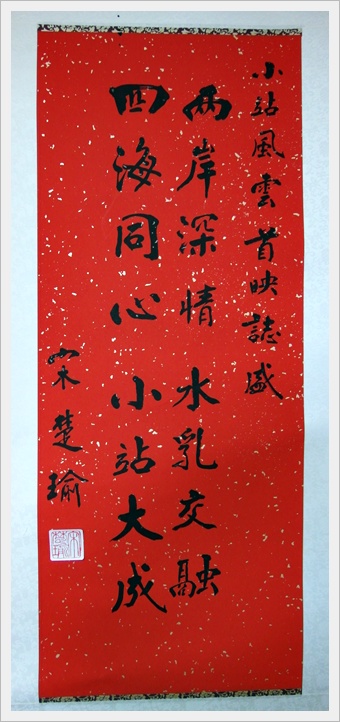 小站風雲首映誌盛
兩岸深情水乳交融
四海同心小站大成
宋楚瑜